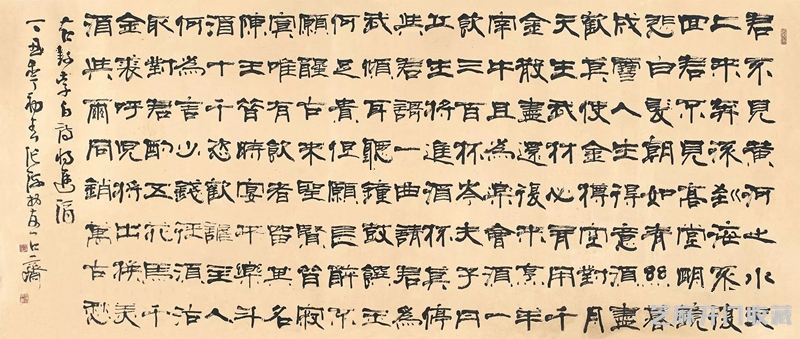 君不見黃河之水天
上來奔流到海不復
回君不見高堂明鏡
悲白髮朝如青絲暮
成雪人生得意須盡
歡莫使金樽空對月
天生我材必有用千
金散盡還復來烹羊
宰牛且為樂會須一
飲三百杯岑夫子丹
丘生將進酒杯莫停
與君謌一曲請君為
我傾耳聽鐘鼓饌玉
何足貴但願長醉不
願醒古來聖賢皆寂
寞唯有飲者留其名
陳王昔時宴平樂斗
酒十千恣歡謔主人
何為言少錢徑須沽
取對君酌五花馬千
金裘呼兒將出換美
酒與爾同銷萬古愁
右錄李白詩將進酒
丁丑初春張海